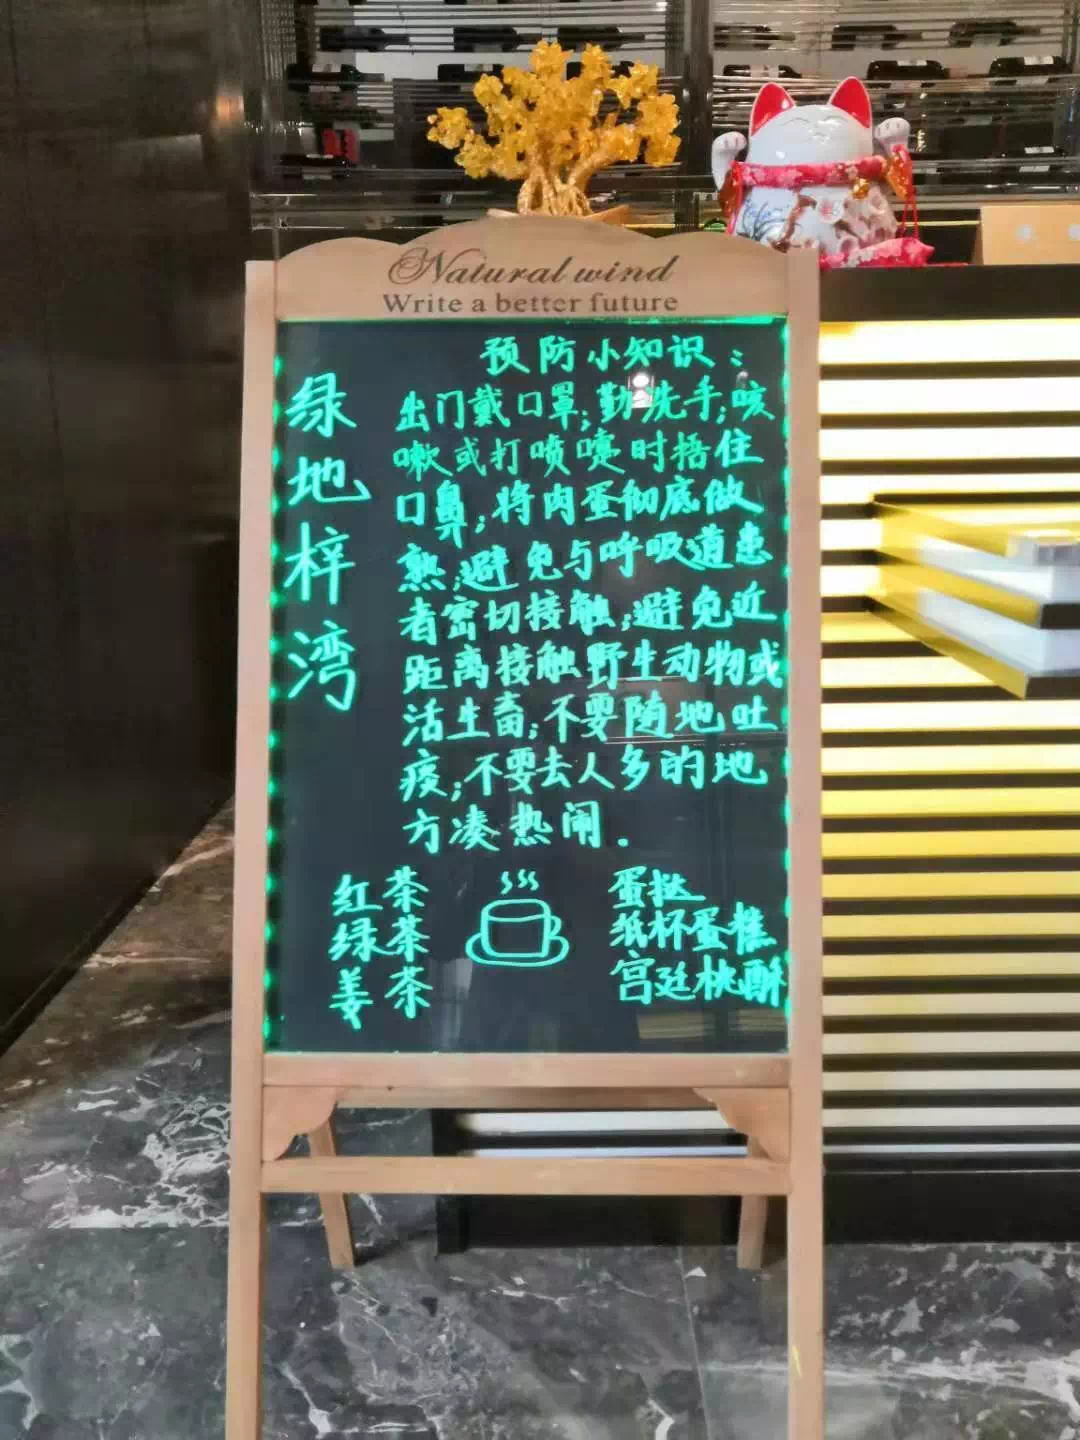 Natural wind
Write a better future
绿地梓湾
预防小知识：
出门戴口罩;勤洗手;咳
嗽或打喷嚏时捂住
口鼻;将肉蛋彻底做
熟;避免与呼吸道患
者密切接触;避免近
距离接触野生动物或
活生畜;不要随地吐
痰;不要去人多的地
方凑热闹.
红茶
绿茶
姜茶
蛋挞
纸杯蛋糕
宫廷桃酥